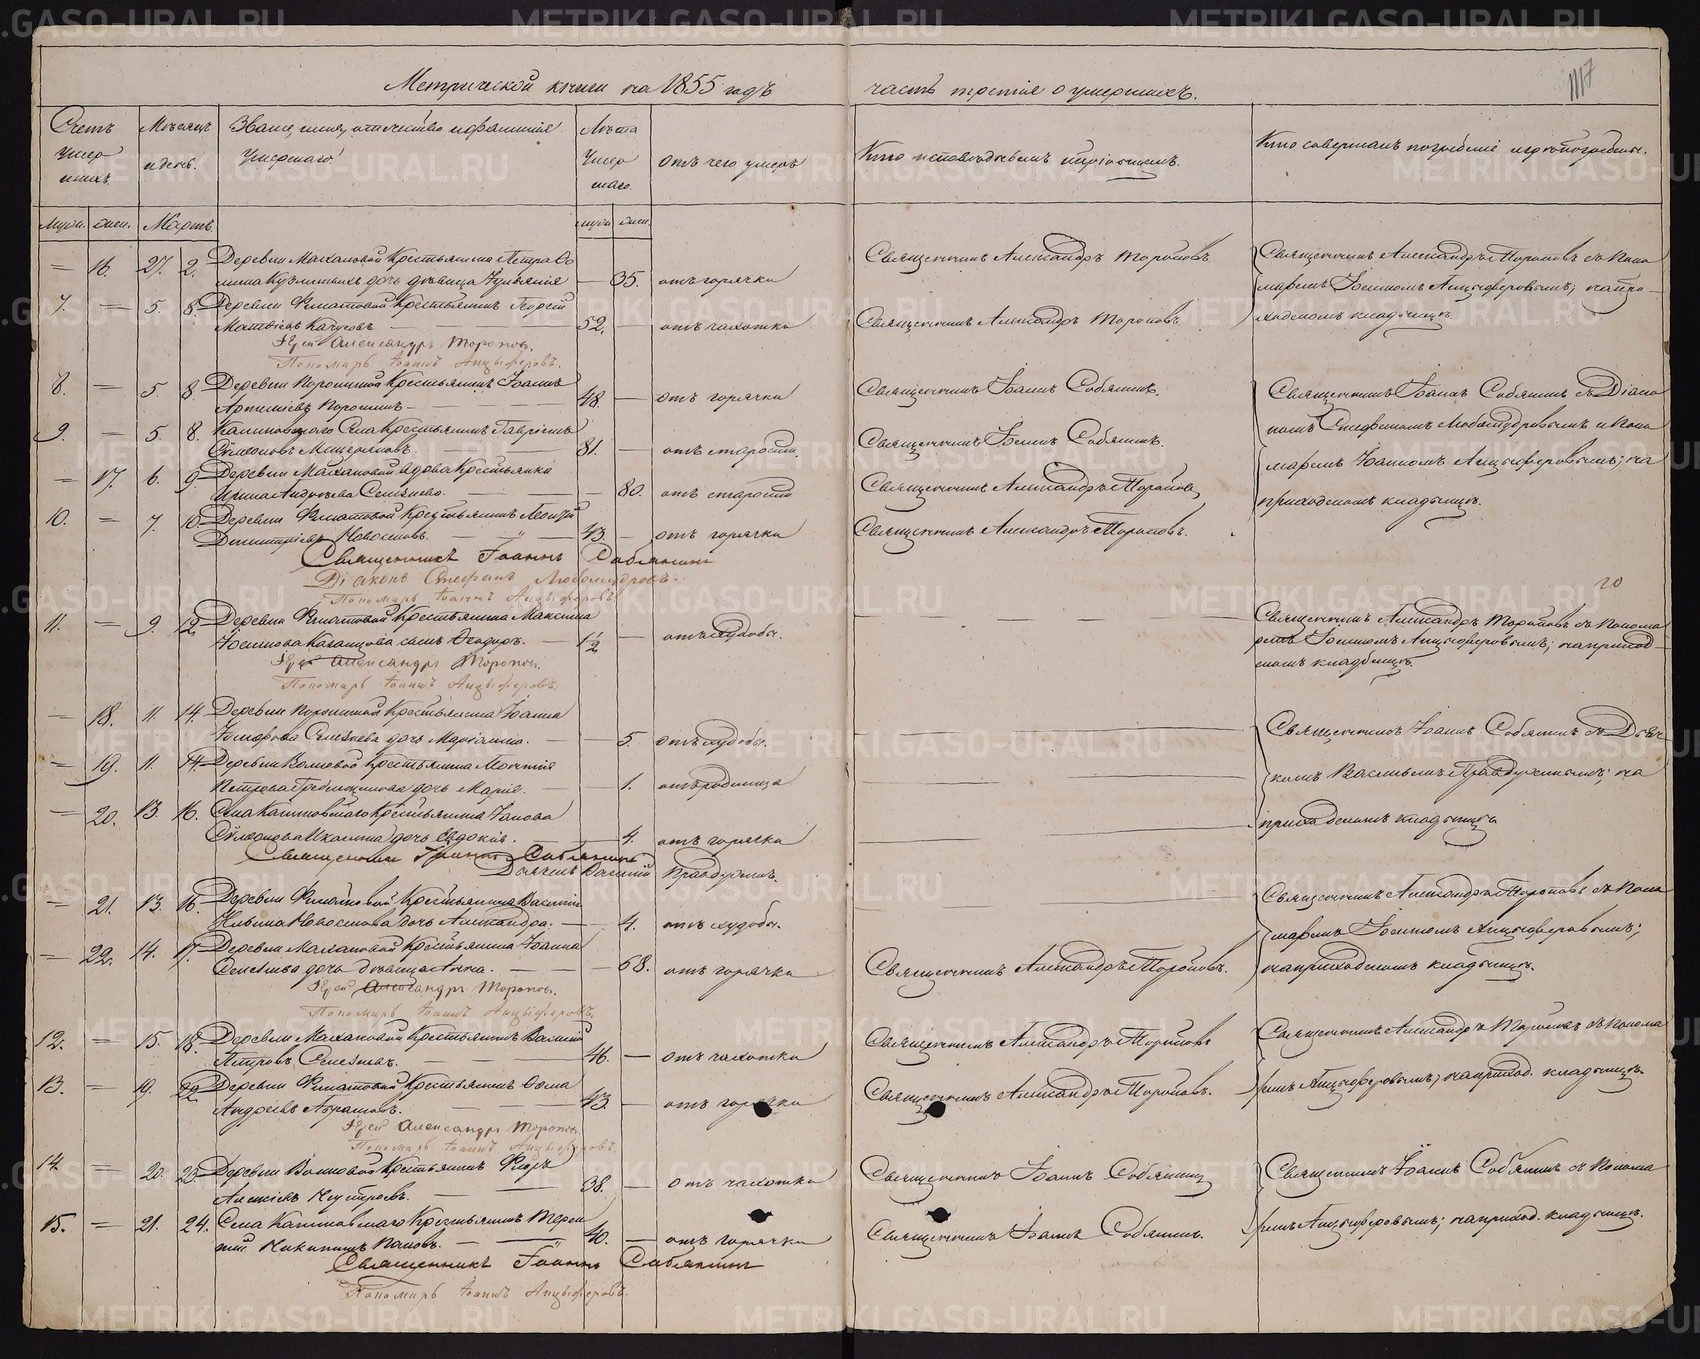 Метрической книги на 1855 годъ часть третія о умершихъ.
1117
Счетъ умершихъ.
Мѣсяцъ и день.
Званіе, имя, отчество и фамилія умершаго
Лѣта умершаго.
Отъ чего умеръ
Кто исповѣдывалъ и пріобщалъ.
Кто совершалъ погребеніе и гдѣ погребены.
Муж. жен. Мартъ муж. жен.
— 16. 27. 2. Деревни Махановой Крестьянина Петра
дочь дѣвица — 35. отъ горячки
Священникъ Александръ Торопов.
Священникъ Александръ Торопов съ Поно
маремъ Іоанномъ Анцыферовымъ; на при
ходскомъ кладбищѣ.
7. — 5. 8. Деревни Крестьянинъ Георгій
Матвѣевъ 52. — отъ чахотки
Священникъ Александръ Торопов.
Іерей Александръ Торопов.
Пономарь Іоаннъ Анцыферовъ.
8. — 5. 8. Деревни Паршиной Крестьянинъ Іоаннъ
48. — отъ горячки
Священникъ Іоаннъ Собянинъ.
Священникъ Іоаннъ Собянинъ съ Діако
номъ Стефаномъ Любомудровымъ и Поно
маремъ Іоанномъ Анцыферовымъ; на
приходскомъ кладбищѣ.
9. — 5. 8. Калиновскаго Села Крестьянинъ Гавріилъ
Симеоновъ Мещеряковъ 81. — отъ старости.
Священникъ Іоаннъ Собянинъ.
— 17. 6. 9. Деревни Махановой вдова Крестьянка
Ирина Андреева Селезнева. — 80. отъ старости
Священникъ Александръ Торопов
10. — 7. 10. Деревни Крестьянинъ
Димитріевъ Новоселовъ. 43. — отъ горячки
Священникъ Александръ Торопов.
Священникъ Іоаннъ Собянинъ
Діаконъ Стефанъ Любомудровъ.
Пономарь Іоаннъ Анцыферовъ
20
11. — 9. 12. Деревни Крестьянина Максима
Казанцова сынъ Ѳеодоръ. 1½ — отъ худобы.
Священникъ Александръ Торопов съ Понома
ремъ Іоанномъ Анцыферовымъ; на приход
скомъ кладбищѣ.
Іерей Александръ Торопов.
Пономарь Іоаннъ Анцыферовъ.
— 18. 11. 14. Деревни Паршиной Крестьянина Іоанна
Селезнева дочь Маріамна. — 5. отъ худобы.
Священникъ Іоаннъ Собянинъ съ Дьяч
комъ Василіемъ; на
приходскомъ кладбищѣ
— 19. 11. 14. Деревни Волковой Крестьянина
Петрова дочь Марія. — 1. отъ родимца
— 20. 13. 16. Села Калиновскаго Крестьянина
дочь Евдокія. — 4. отъ горячки
Священникъ Іоаннъ Собянинъ
Дьячекъ Василій
— 21. 13. 16. Деревни Крестьянина Василія
Новоселова дочь Александра. — 4. отъ худобы.
Священникъ Александръ Торопов съ Поно
маремъ Іоанномъ Анцыферовымъ;
на приходскомъ кладбищѣ.
— 22. 14. 17. Деревни Махановой Крестьянина Іоанна
Селезнева дочь дѣвица Анна. — 68. отъ горячки
Священникъ Александръ Торопов.
Іерей Александръ Торопов.
Пономарь Іоаннъ Анцыферовъ.
12. — 15. 18. Деревни Махановой Крестьянинъ Василій
Петровъ Селезневъ. 46. — отъ чахотки
Священникъ Александръ Торопов
Священникъ Александръ Торопов съ Понома
ремъ Анцыферовымъ; на приход. кладбищѣ.
13. — 19. 22. Деревни Крестьянинъ Ѳома
Андреевъ Абрамовъ. 43. — отъ горячки
Священникъ Александръ Торопов.
Іерей Александръ Торопов.
Пономарь Іоаннъ Анцыферовъ.
14. — 20. 23. Деревни Волковой Крестьянинъ Флоръ
Алексѣевъ 38. — отъ чахотки
Священникъ Іоаннъ Собянинъ
Священникъ Іоаннъ Собянинъ съ Понома
ремъ Анцыферовымъ; на приход. кладбищѣ.
15. — 21. 24. Села Калиновскаго Крестьянинъ Терен
тій Никитинъ Поповъ. 40. — отъ горячки
Священникъ Іоаннъ Собянинъ.
Священникъ Іоаннъ Собянинъ
Пономарь Іоаннъ Анцыферовъ.
METRIKI.GASO-URAL.RU